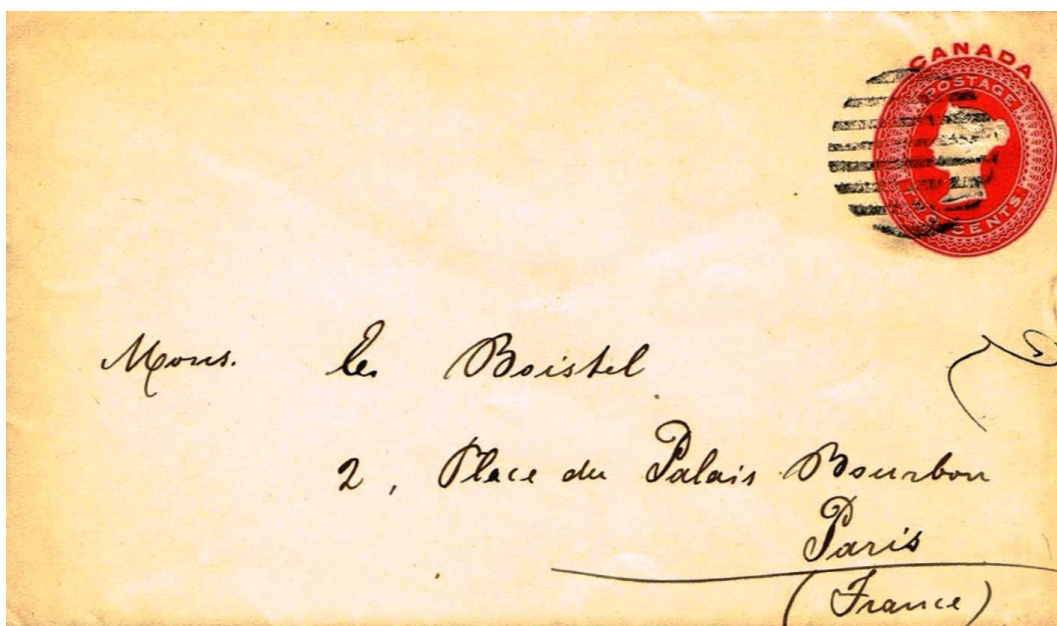 CANADA
POSTAGE
TWO CENTS
Mons. Boistel
2, Place du Palais Bourbon
Paris
(France)